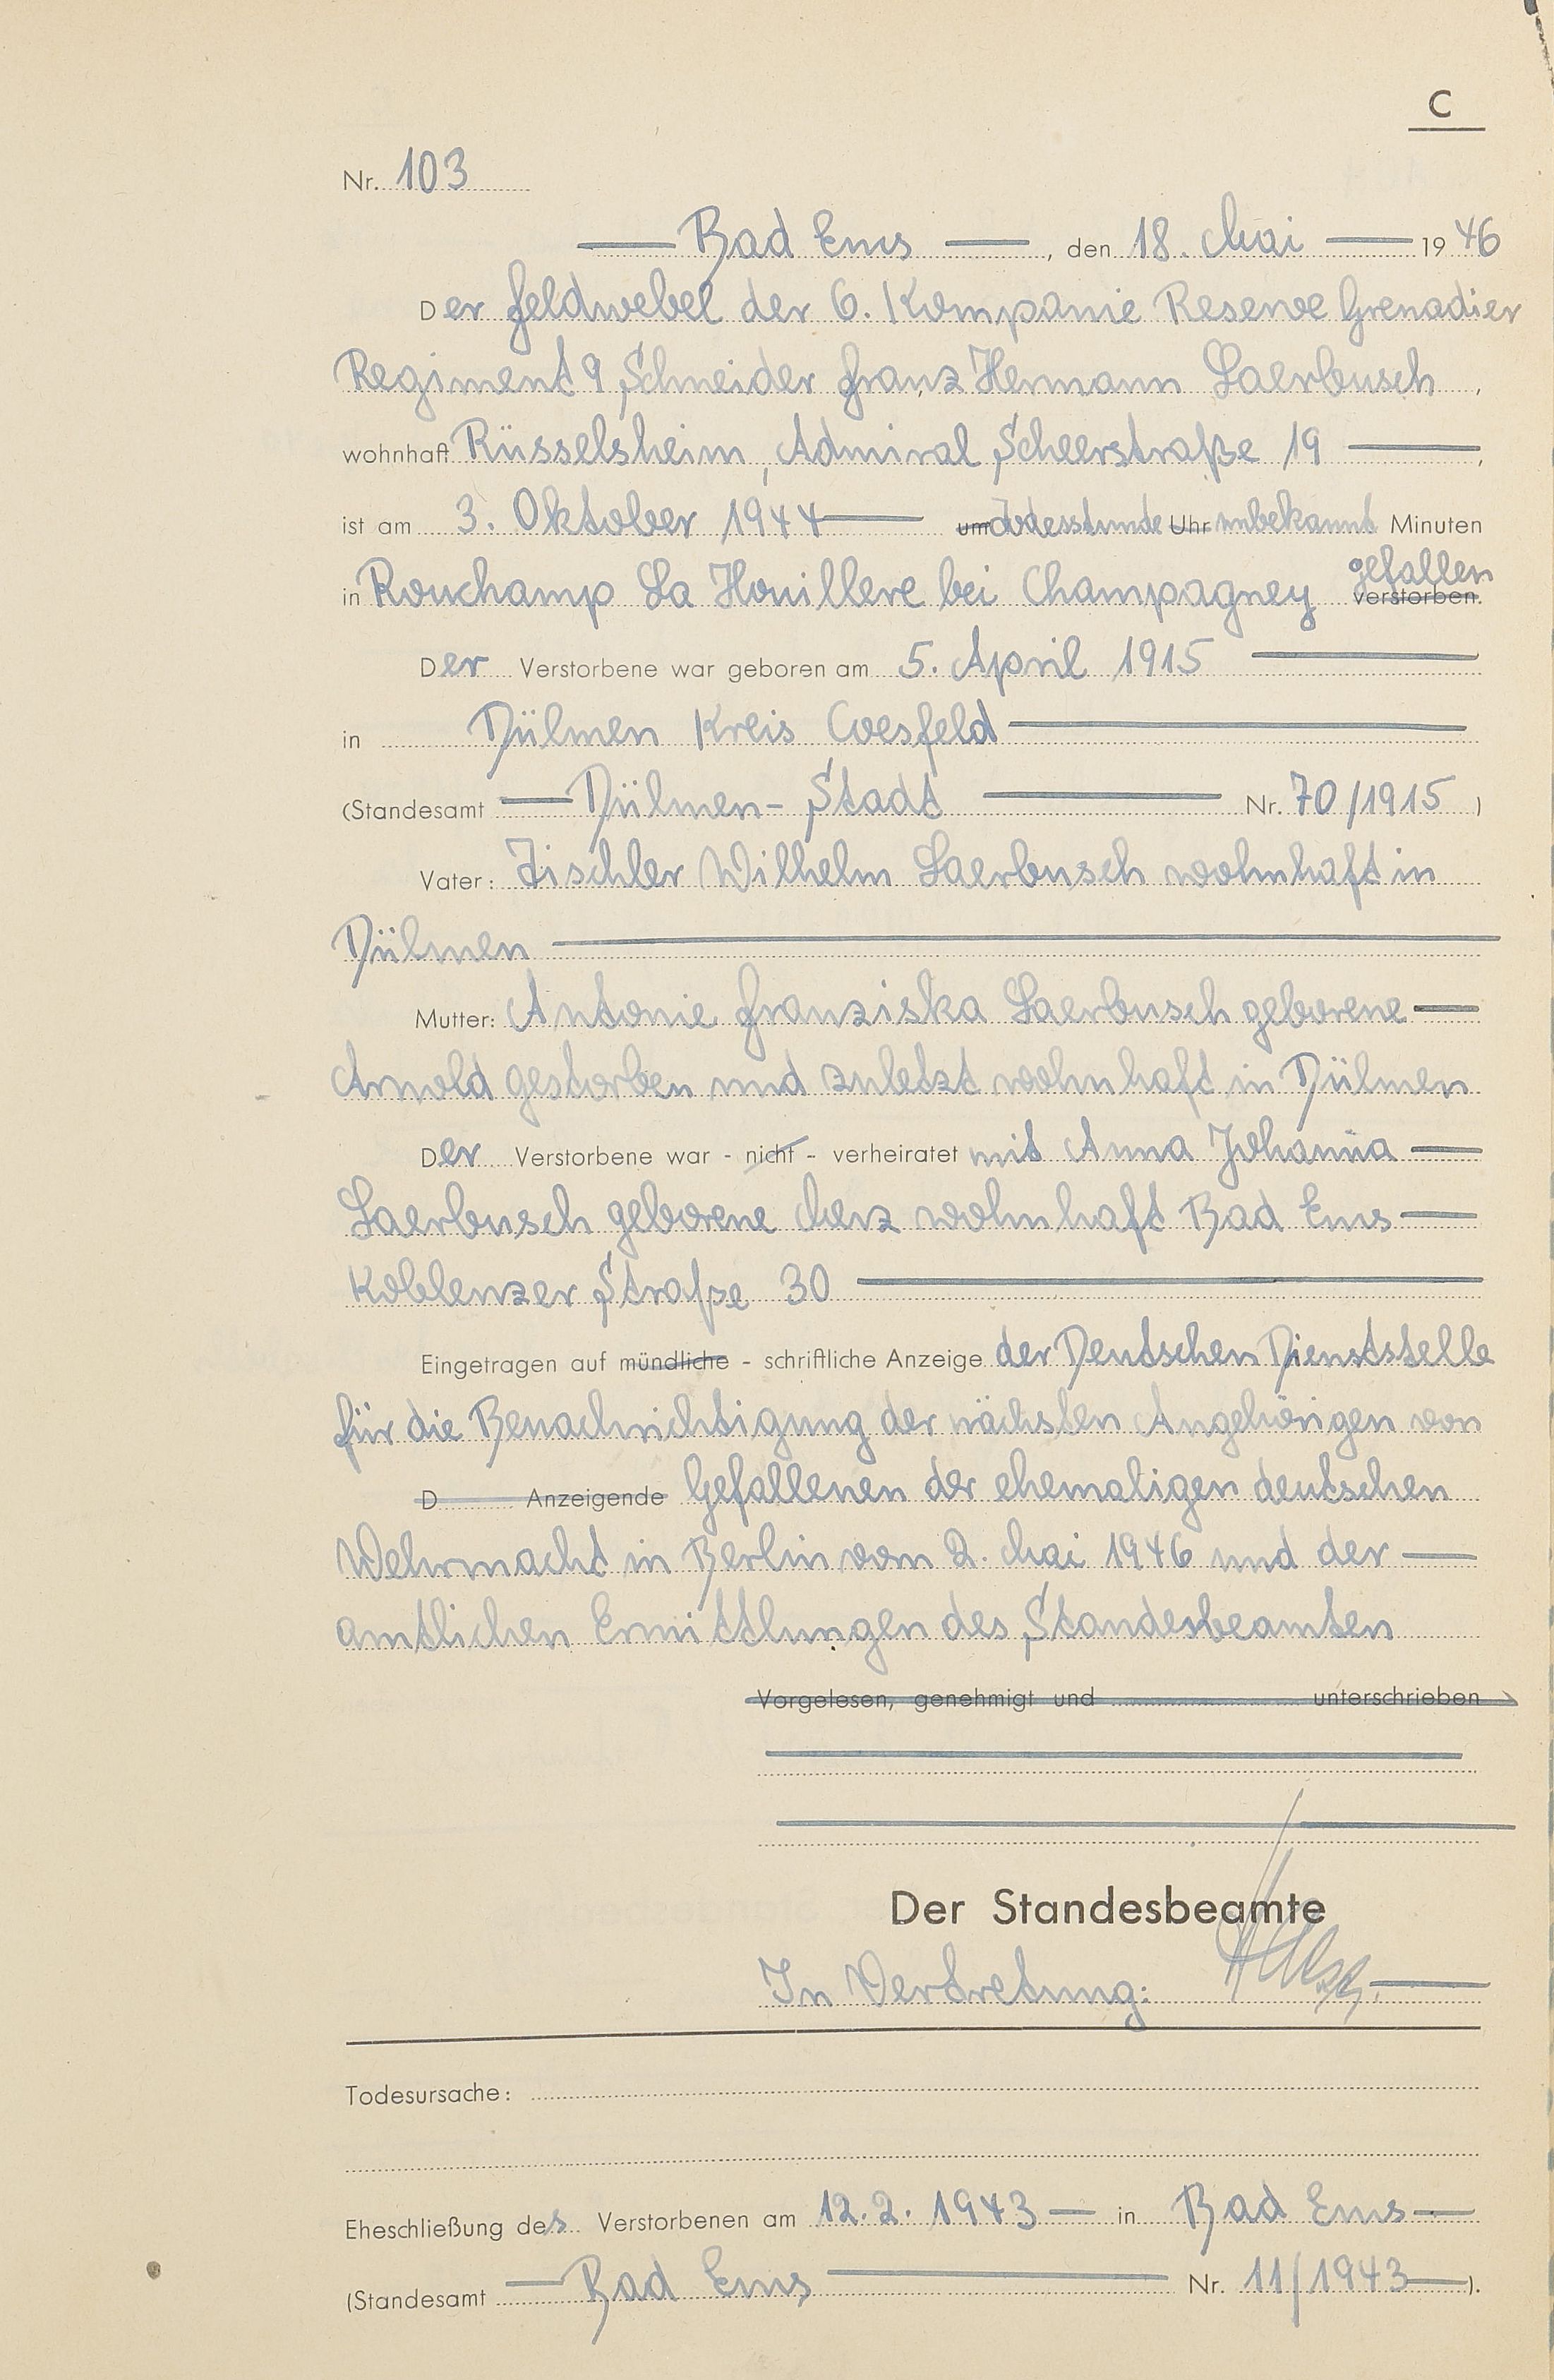 C
Nr. 103
Bad Ems, den 18. Mai 1946
Der Feldwebel der 6. Kompanie Reserve Grenadier
Regiment 9, Schneider Franz Hermann Laerbusch,
wohnhaft Rüsselsheim, Admiral Scheerstraße 19,
ist am 3. Oktober 1944 um Todesstunde Uhr unbekannt Minuten
in Rouchamp La Houillere bei Champagney gefallen
verstorben.
Der Verstorbene war geboren am 5. April 1915
in Dülmen Kreis Coesfeld
(Standesamt Dülmen-Stadt Nr. 70/1915)
Vater: Tischler Wilhelm Laerbusch wohnhaft in
Dülmen
Mutter: Antonie Franziska Laerbusch geborene
Arnold gestorben und zuletzt wohnhaft in Dülmen
Der Verstorbene war - nicht - verheiratet mit Anna Johanna
Laerbusch geborene Merz wohnhaft Bad Ems
Koblenzer Straße 30
Eingetragen auf mündliche - schriftliche Anzeige der Deutschen Dienststelle
für die Benachrichtigung der nächsten Angehörigen von
D Anzeigende Gefallenen der ehemaligen deutschen
Wehrmacht in Berlin vom 2. Mai 1946 und der
amtlichen Ermittlungen des Standesbeamten
Vorgelesen, genehmigt und unterschrieben
Der Standesbeamte
In Vertretung:
Todesursache:
Eheschließung des Verstorbenen am 12.2.1943 in Bad Ems
(Standesamt Bad Ems Nr. 11/1943).